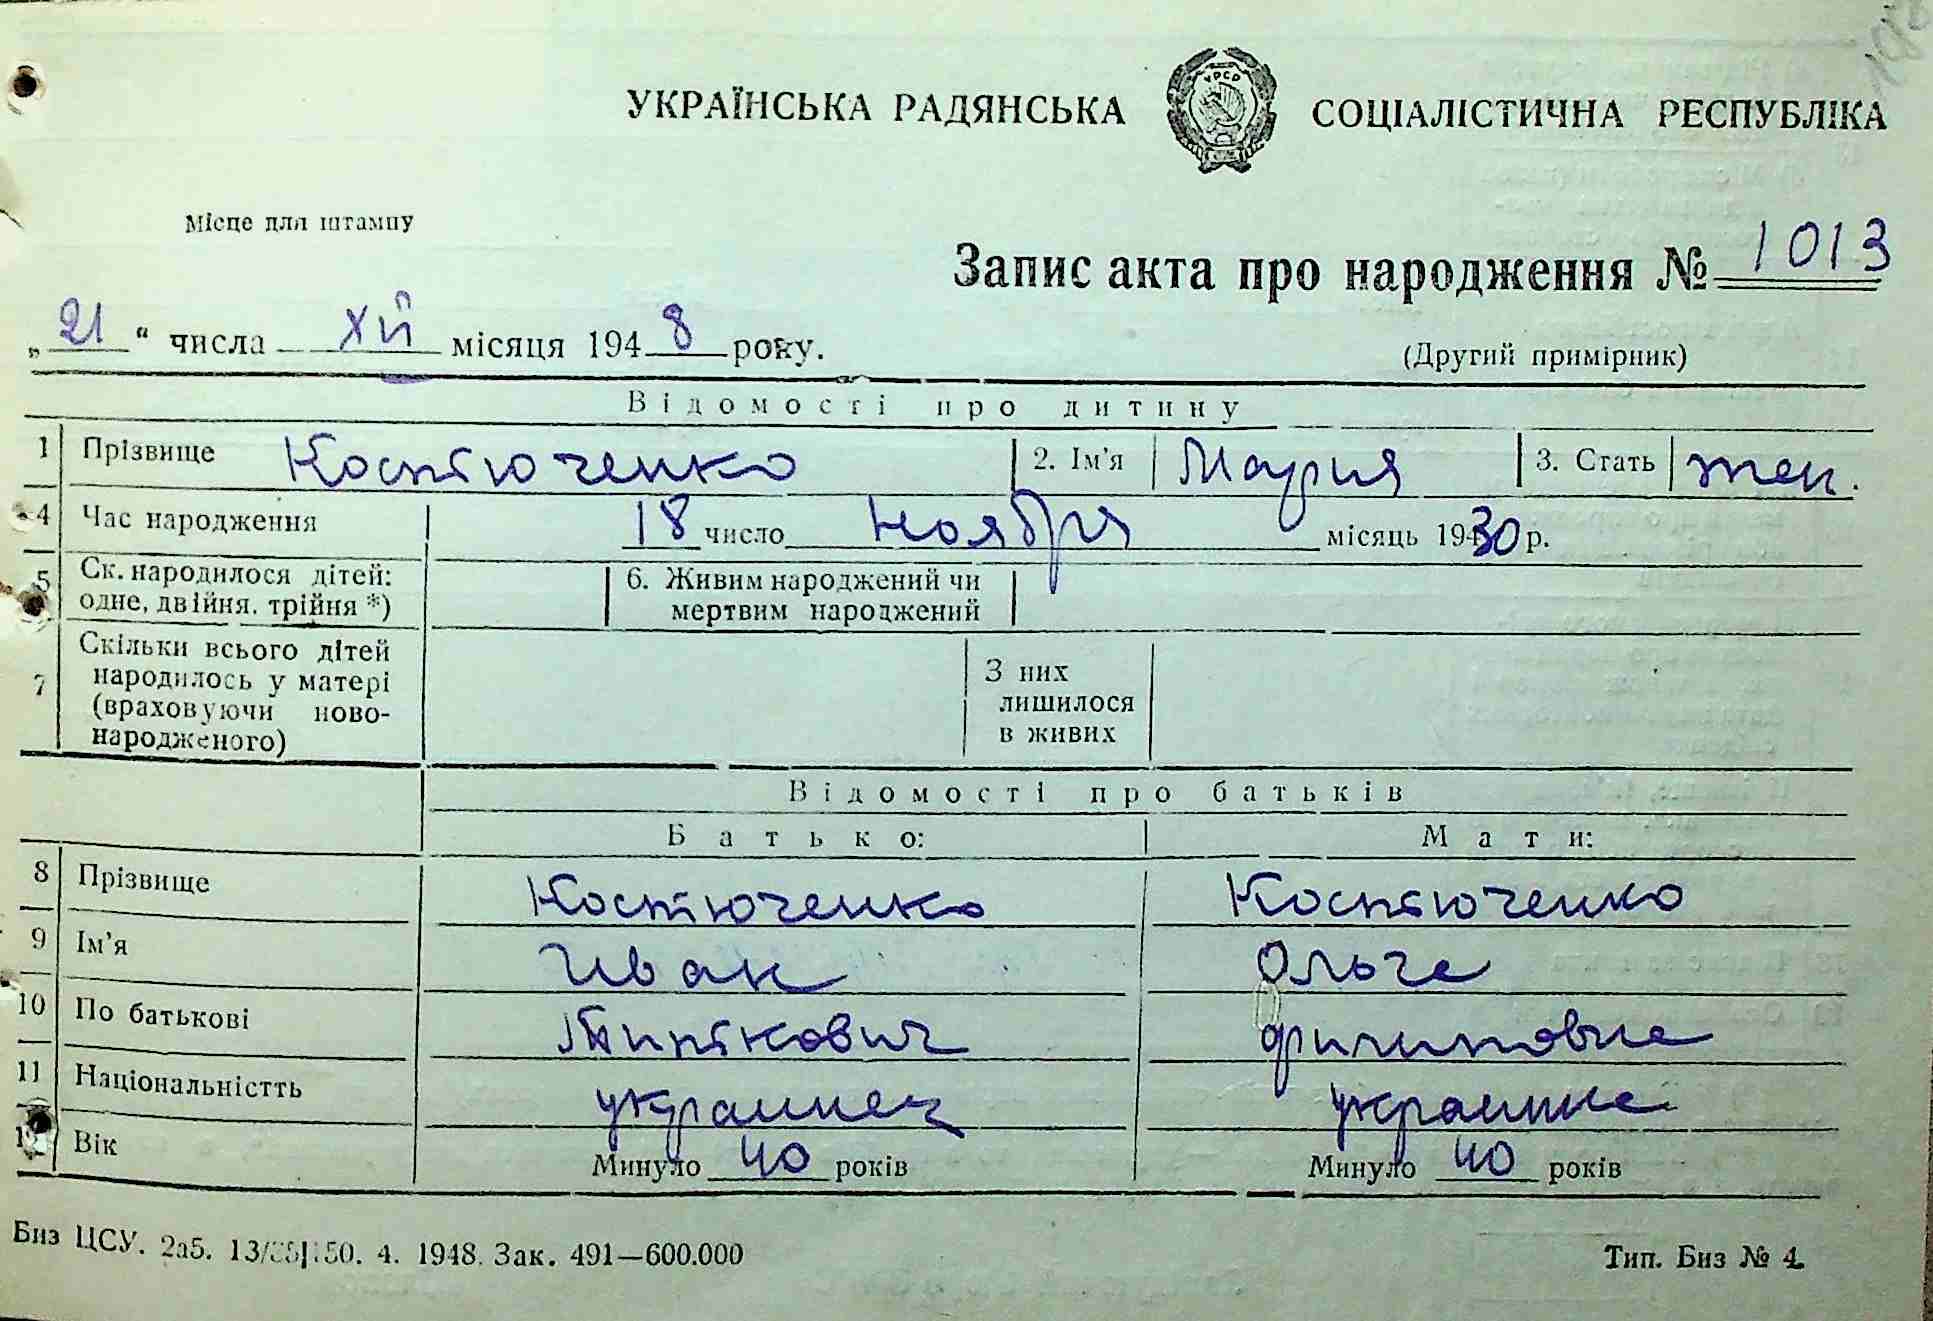 УКРАЇНСЬКА РАДЯНСЬКА СОЦІАЛІСТИЧНА РЕСПУБЛІКА
УРСР
Місце для штампу
Запис акта про народження № 1013
„21“ числа XII місяця 1948 року.
(Другий примірник)
Відомості про дитину
1 Прізвище Костюченко 2. Ім'я Мария 3. Стать жен.
4 Час народження 18 число Ноября місяць 1930 р.
5 Ск. народилося дітей: одне, двійня, трійня *) 6. Живим народжений чи мертвим народжений
7 Скільки всього дітей народилось у матері (враховуючи ново-народженого) З них лишилося в живих
Відомості про батьків
Батько: Мати:
8 Прізвище Костюченко Костюченко
9 Ім'я Иван Ольга
10 По батькові Филиповна
11 Національністть украинец украинка
12 Вік Минуло 40 років Минуло 40 років
Биз ЦСУ. 2а5. 4. 1948. Зак. 491—600.000
Тип. Биз № 4.